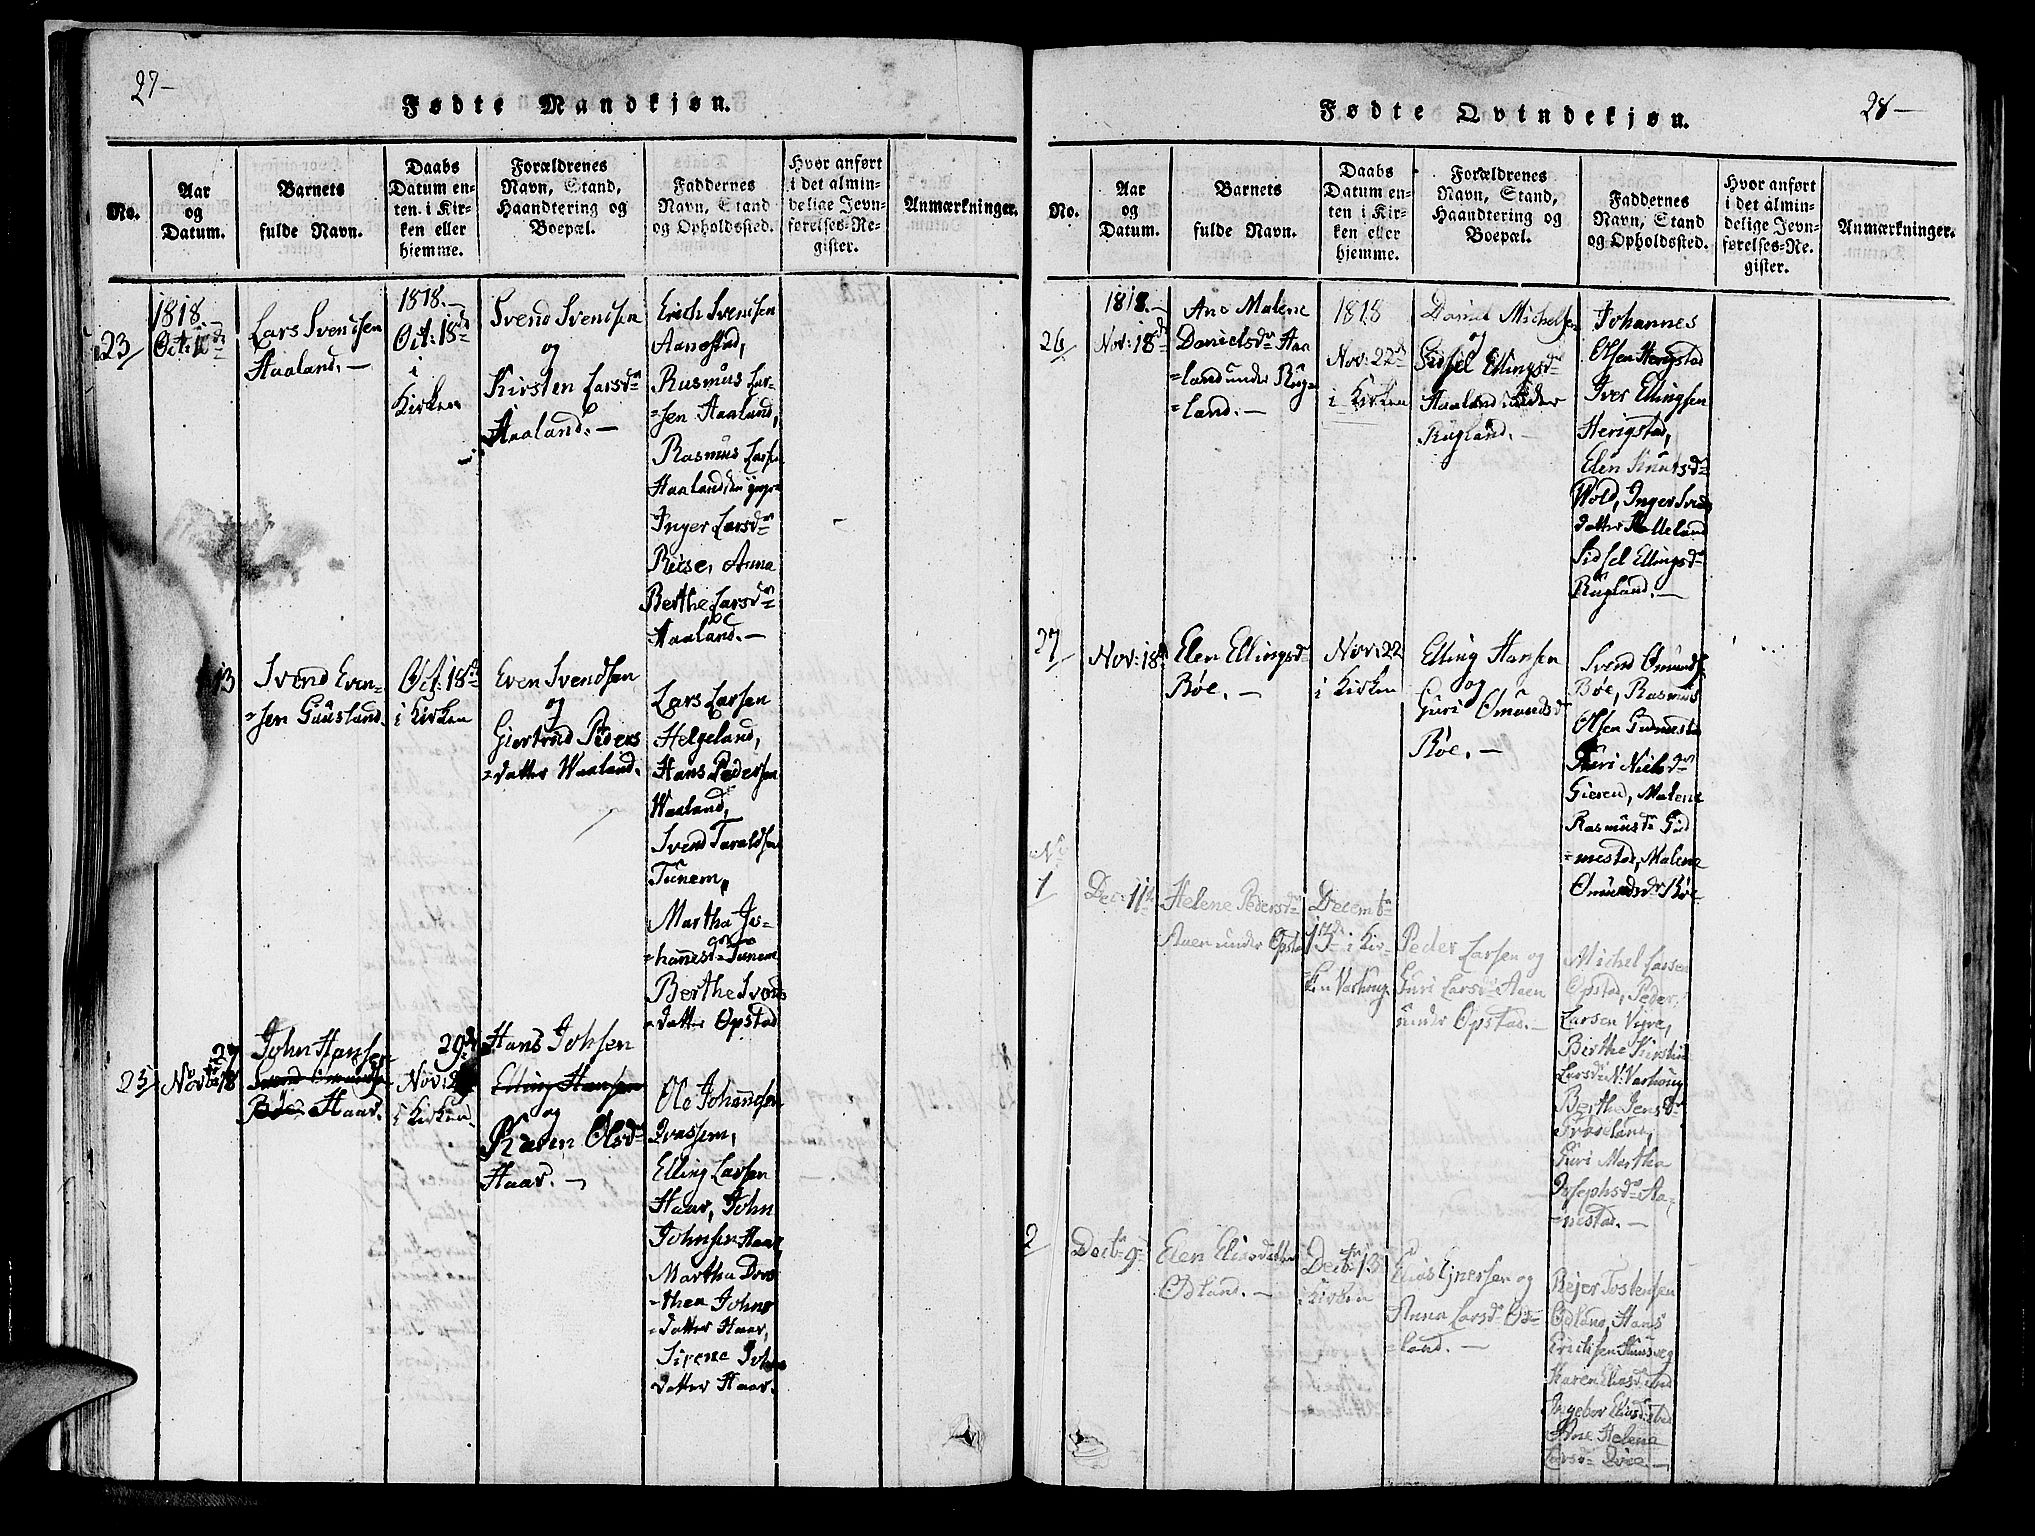 27-
Fødte Mandkjøn.
No.
Aar
og
Datum.
Barnets
fulde Navn.
Daabs
Datum en-
ten i Kir-
ken eller
hjemme.
Forældrenes
Navn, Stand,
Haandtering og
Boepæl.
Faddernes
Navn, Stand
og Opholdssted.
Hvor anført
i det almin-
delige Jevn-
førelses-Re-
gister.
Anmærkninger.
23
1818
Oct:
Lars Svendsen
Haaland. —
1818. —
Oct: 18de
i
Kirken
Svend Svendsen
og
Kirsten Larsdr
Haaland. —
Erich Svendsen
Aanestad,
Rasmus Lar-
=sen Haaland,
Rasmus Larsen
Haaland den yngre
Inger Larsdr
Reise, Anna
Berthe Larsdr
Haaland. —
13
Svend Even-
=sen Gausland
Oct. 18de
i Kirken
Even Svendsen
og
Giertrud Peders
=datter Waaland.
Lars Larsen
Helgeland,
Hans Pedersen
Waaland,
Svend Taraldsen
Tunem,
Martha Jo-
=hannesdr Tunem
Berthe Svends
=datter Opstad
25
27
Novbr 18
John Hansen
Svend Omunds
Bøe Haar.
29de
Nov: 2
i Kirken
Hans Johsen
Elling Hansen
og
Karen Olsdr
Haar. —
Ole Johannsen
Qvassem,
Elling Larsen
Haar, John
Johnsen Haar,
Martha Doro
=thea Johns
=datter Haar,
Sirene Johns
datter Haar.
28-
Fødte Qvindekjøn.
No.
Aar
og
Datum.
Barnets
fulde Navn.
Daabs
Datum en-
ten i Kir-
ken eller
hjemme.
Forældrenes
Navn, Stand,
Haandtering og
Boepæl.
Faddernes
Navn, Stand
og Opholdssted.
Hvor anført
i det almin-
delige Jevn-
førelses-Re-
gister.
Anmærkninger.
26
1818. —
Nov: 18de
Ane Malene
Danielsdr Haa
=land under Rug=
=land. —
1818
Nov: 22de
i Kirken
Daniel Michelsen
og
Sidsel Ellingsdr
Haaland under
Rugland. —
Johannes
Olsen Herigstad
Iver Ellingsen
Herigstad,
Elen Knutsdr
Wold, Inger Svends
datter Helleland
Sidsel Ellingsdr
Rugland. —
27
Nov: 18de
Elen Ellingsdr
Bøe. —
Nov: 22
i Kirken
Elling Hansen
og
Guri Omundsdr
Bøe. —
Svend Omunds.
Bøe, Rasmus
Olsen Gudmestad
Guri Nielsdr
Gieren, Malene
Rasmusdr Gud
=mestad, Malene
Omundsdr Bøe
No
1
Dec: 11te
Helene Pedersdr
Aaen under Opstad
Decemb
13de i Kir-
ken Varhoug
Peder Larsen og
Guri Larsdr Aaen
under Opstad. —
Michel Larsen
Opstad, Peder
Larsen Vigre,
Birthe Kirstine
Larsdr N: Varhoug
Berthe Jensdr
Guri Martha
Josephsdr Aa-
=nestad. —
2
Decbr 9de
Elen Eliasdatter
Odland. —
Decbr 13
i Kirken
Elias Ejnersen og
Anna Larsdr Od=
=land. —
Rejer Tostensen
Odland, Hans
Erichsen
Karen Eliasdr
Ingebor Eliasdr
Ane Helene
Larsdr —